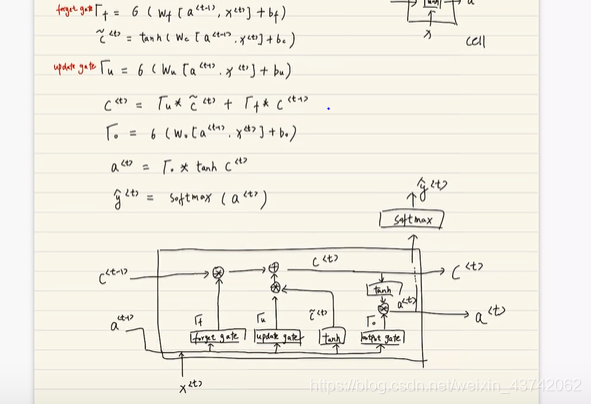 forget gate Γf = 6 ( Wf [ a<t-1>, x<t> ] + bf )
c̃<t> = tanh ( Wc [ a<t-1>, x<t> ] + bc )
update gate Γu = 6 ( Wu [ a<t-1>, x<t> ] + bu )
c<t> = Γu * c̃<t> + Γf * c<t-1> .
Γo = 6 ( Wo [ a<t-1>, x<t> ] + bo )
a<t> = Γo * tanh c<t>
ŷ<t> = softmax ( a<t> )
a
x
cell
ŷ<t>
softmax
c<t-1>
c<t>
c<t>
tanh
a<t>
a<t>
a<t-1>
Γf
Γu
c̃<t>
Γo
forget gate
update gate
tanh
output gate
x<t>
https://blog.csdn.net/weixin_43742062